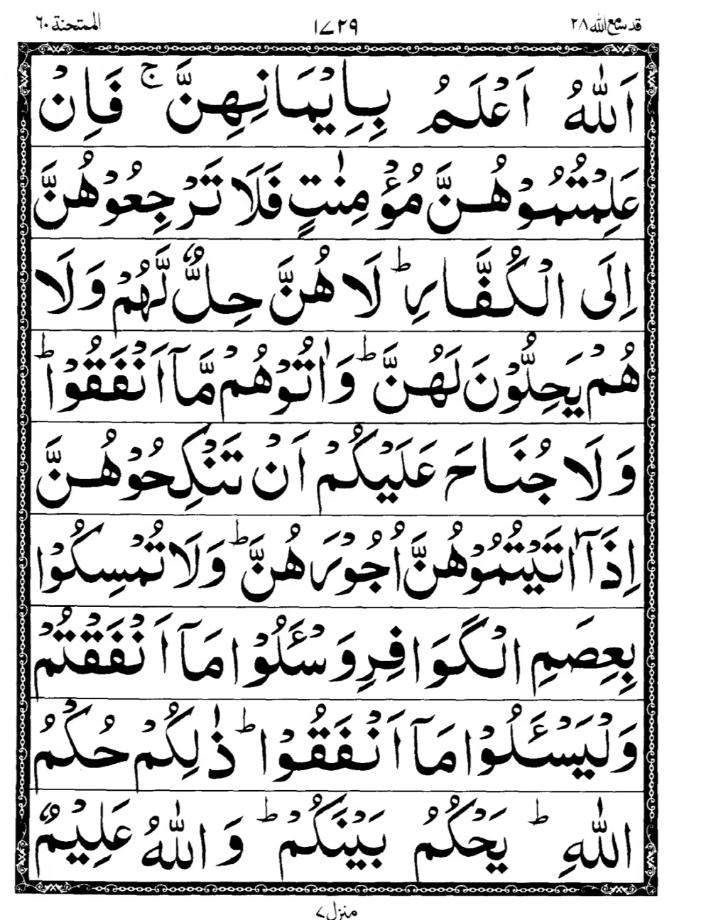 قد سمع الله ٢٨ ١٧٢٩ الممتحنة ٦٠
اَللّٰهُ اَعْلَمُ بِاِيْمَانِهِنَّ ۚ فَاِنْ
عَلِمْتُمُوْهُنَّ مُؤْمِنٰتٍ فَلَا تَرْجِعُوْهُنَّ
اِلَى الْكُفَّارِ ؕ لَا هُنَّ حِلٌّ لَّهُمْ وَلَا
هُمْ يَحِلُّوْنَ لَهُنَّ ؕ وَاٰتُوْهُمْ مَّاۤ اَنْفَقُوْا ؕ
وَلَا جُنَاحَ عَلَيْكُمْ اَنْ تَنْكِحُوْهُنَّ
اِذَاۤ اٰتَيْتُمُوْهُنَّ اُجُوْرَهُنَّ ؕ وَلَا تُمْسِكُوْا
بِعِصَمِ الْكَوَافِرِ وَسْـَٔلُوْا مَاۤ اَنْفَقْتُمْ
وَلْيَسْـَٔلُوْا مَاۤ اَنْفَقُوْا ؕ ذٰلِكُمْ حُكْمُ
اللّٰهِ ؕ يَحْكُمُ بَيْنَكُمْ ؕ وَاللّٰهُ عَلِيْمٌ
منزل ٧